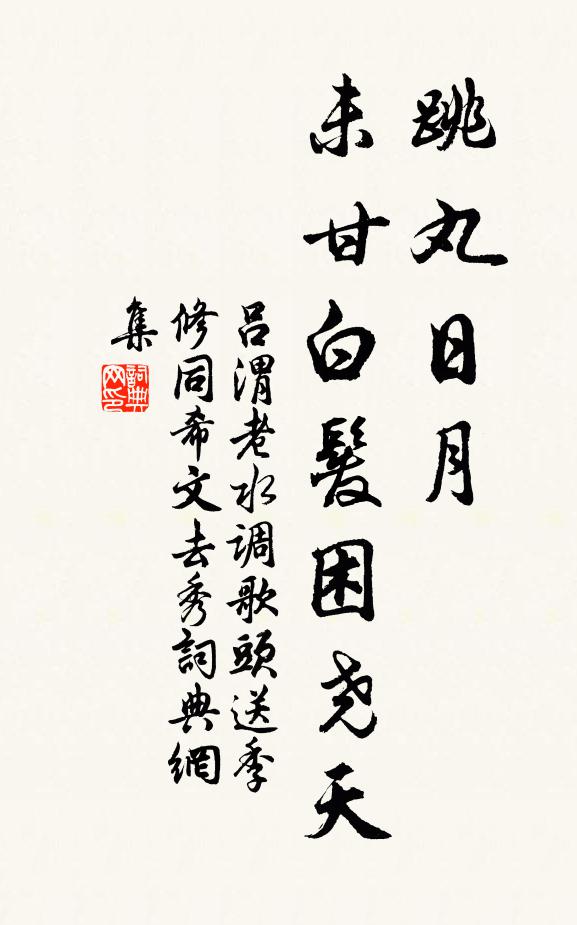 跳丸日月
未甘白髮困尧天
吕渭老水调歌頭送季
修同希文去秀詞典網
集
詞典
网印